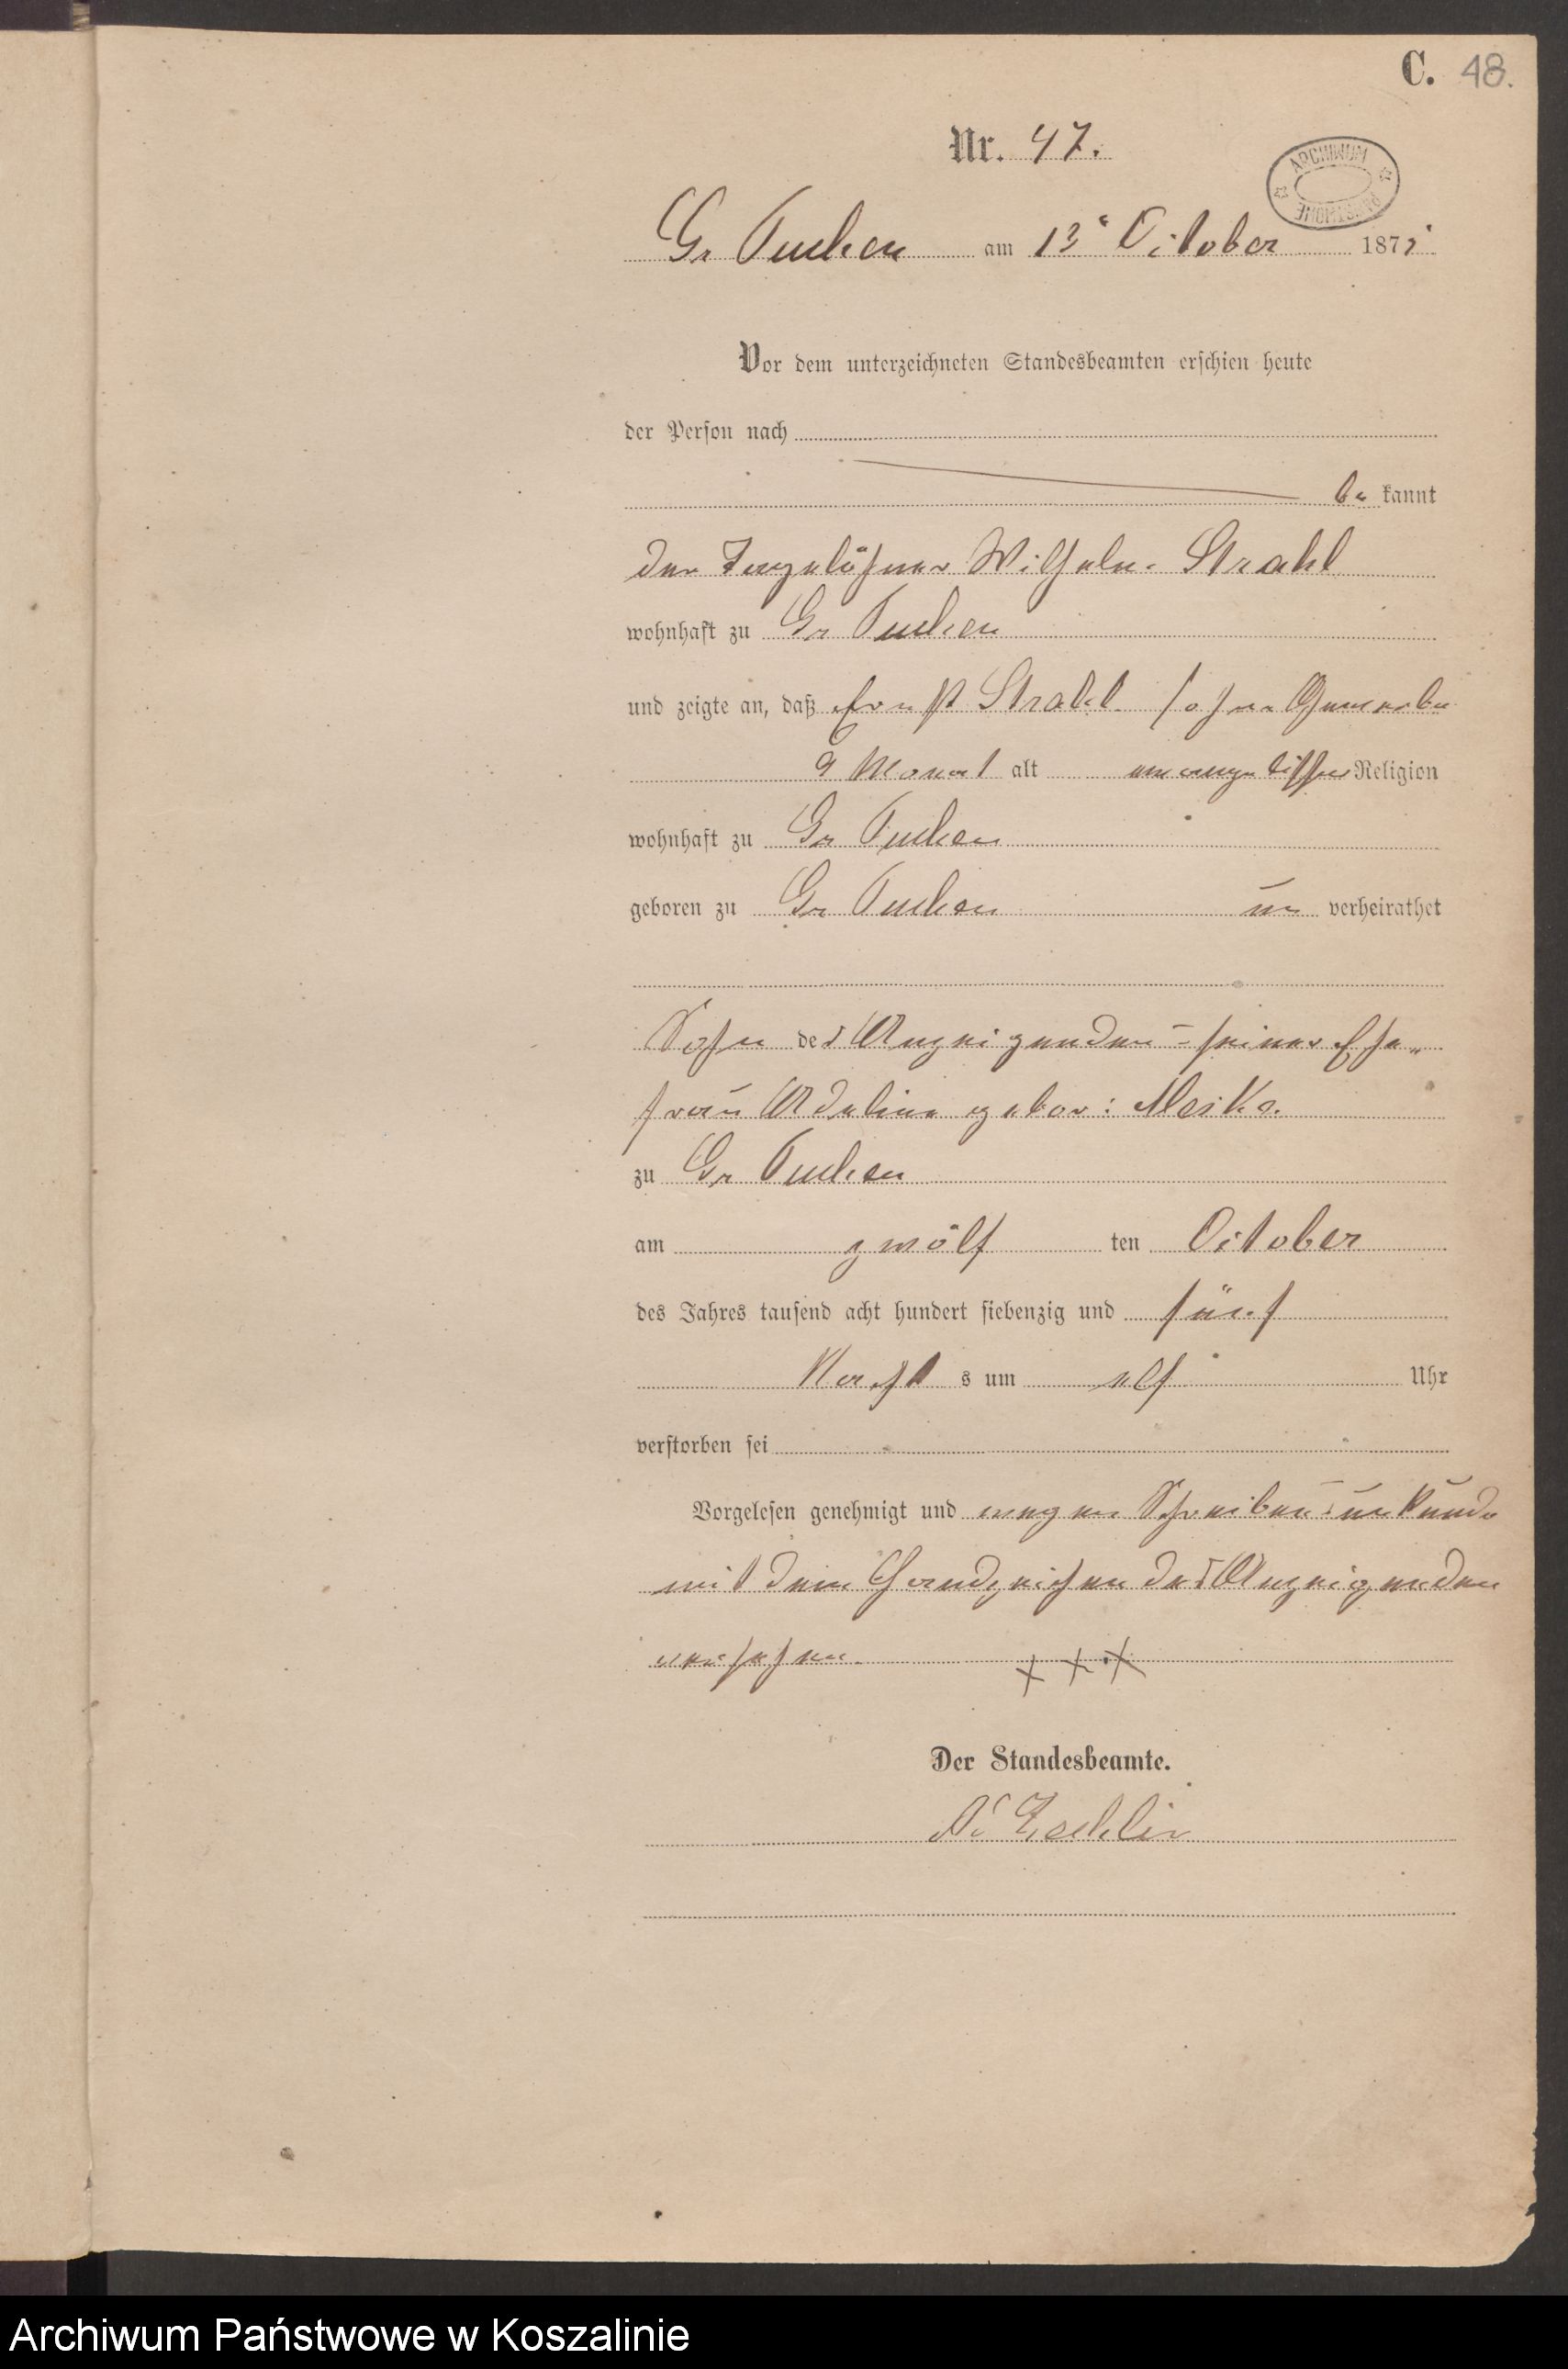 C. 48.
Nr. 47.
ARCHIWUM
Gr Tuchen am 13 October 1875
Vor dem unterzeichneten Standesbeamten erschien heute
der Person nach
be kannt
der Tagelöhner Wilhelm Strahl
wohnhaft zu Gr Tuchen
und zeigte an, daß Ernst Strahl ohne Gewerbe
9 Monat alt evangelischer Religion
wohnhaft zu Gr Tuchen
geboren zu Gr Tuchen un verheirathet
Sohn des Anzeigenden u seiner Ehe„
frau Adeline gebor: Meike
zu Gr Tuchen
am zwölf ten October
des Jahres tausend acht hundert siebenzig und fünf
Nacht s um elf Uhr
verstorben sei
Vorgelesen genehmigt und wegen Schreibensunkunde
mit dem Handzeichen des Anzeigenden
versehen. + + +
Der Standesbeamte.
Archiwum Państwowe w Koszalinie